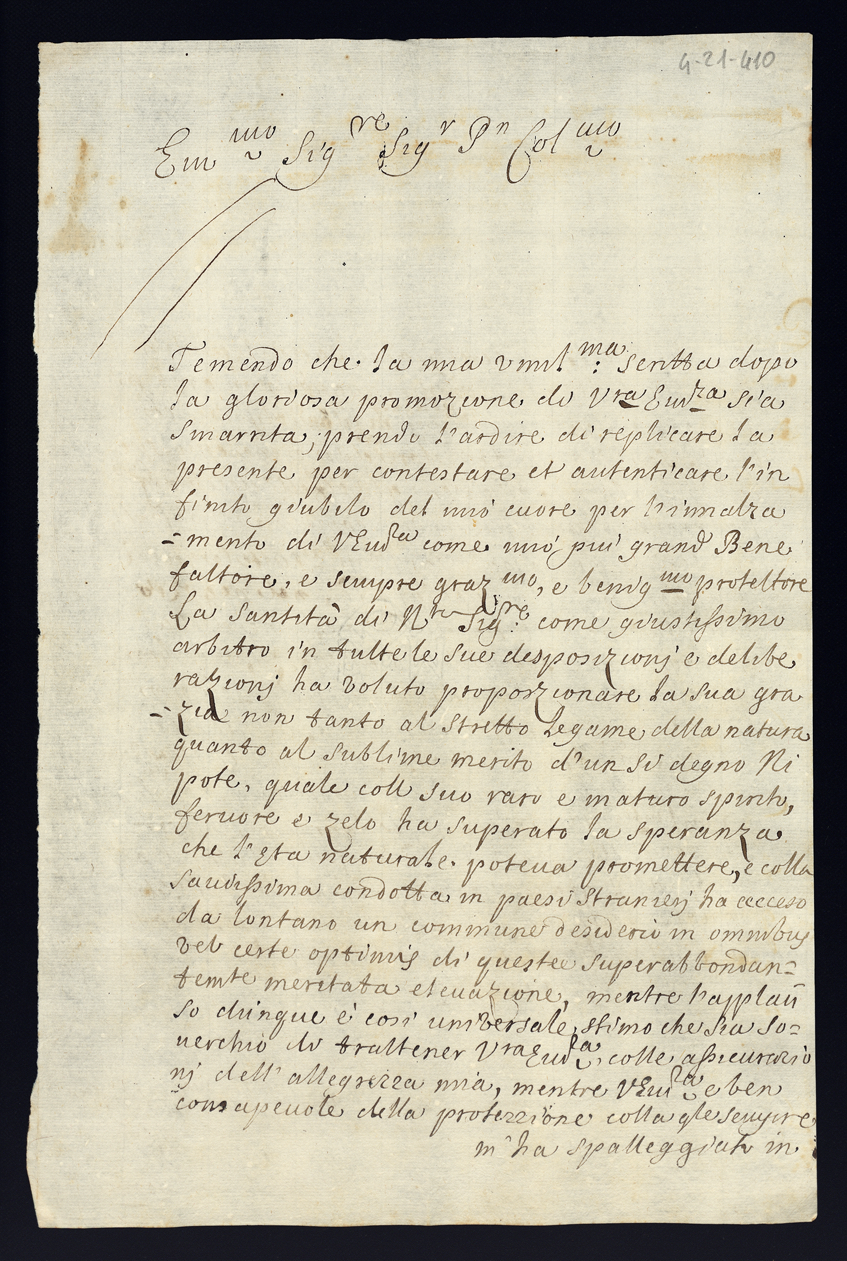 4-21-410
Em mo Sig re Sig r Pn Col mo
Temendo che la mia vmil ma: scritta dopo
la gloriosa promozione di Vra Emza sia
smarrita, prendo l'ardire di replicare la
presente per contestare et autenticare l'in
finito giubilo del mio cuore per l'innalza
=mento di VEmza come mio più grand Bene
fattore, e sempre graz mo, e benig mo protettore
La Santità di Nro Sigre: come giustissimo
arbitro in tutte le sue desposizionj e delibe
razionj ha voluto proporzionare la sua gra
=zia non tanto al stretto legame della natura
quanto al sublime merito d'un si degno Ni
pote, quale coll suo raro e maturo spirito,
feruore e zelo ha superato la speranza
che l'età naturale poteua promettere, e colla
sauissima condotta in paesi stranierj ha acceso
da lontano un commune desiderio in omnibus
vel certe optimis di queste superabbondan=
temte meritata eleuazione, mentre l'applau
so dunque è cosi uniuersale, stimo che sia so=
uerchio di trattener Vra Emza, colle assicurazio
nj dell'allegrezza mia, mentre VEmza e ben
consapeuole della protezzione colla qle sempre
m'ha spalleggiato in